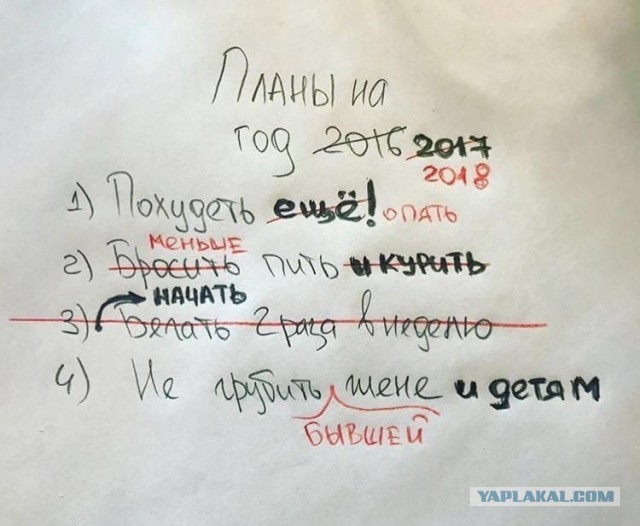 Планы на
год 2016 2017
2018
1) Похудеть ещё! опять
меньше
2) Бросить пить и курить
начать
3) Бегать 2 раза в неделю
4) Не грубить жене и детям
бывшей
YAPLAKAL.COM